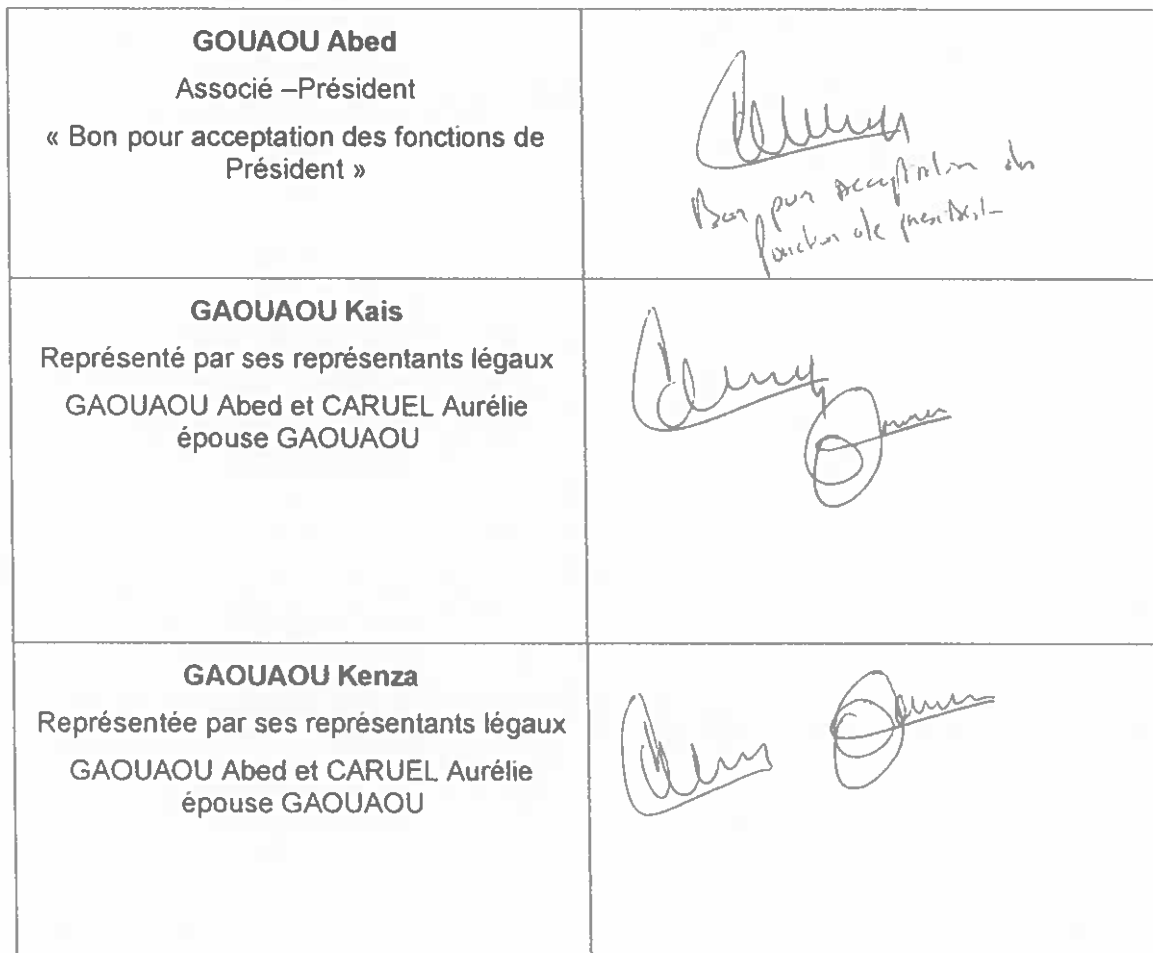 GOUAOU Abed
Associé –Président
« Bon pour acceptation des fonctions de
Président »
Bon pour acceptation des
fonction de president
GAOUAOU Kais
Représenté par ses représentants légaux
GAOUAOU Abed et CARUEL Aurélie
épouse GAOUAOU
GAOUAOU Kenza
Représentée par ses représentants légaux
GAOUAOU Abed et CARUEL Aurélie
épouse GAOUAOU